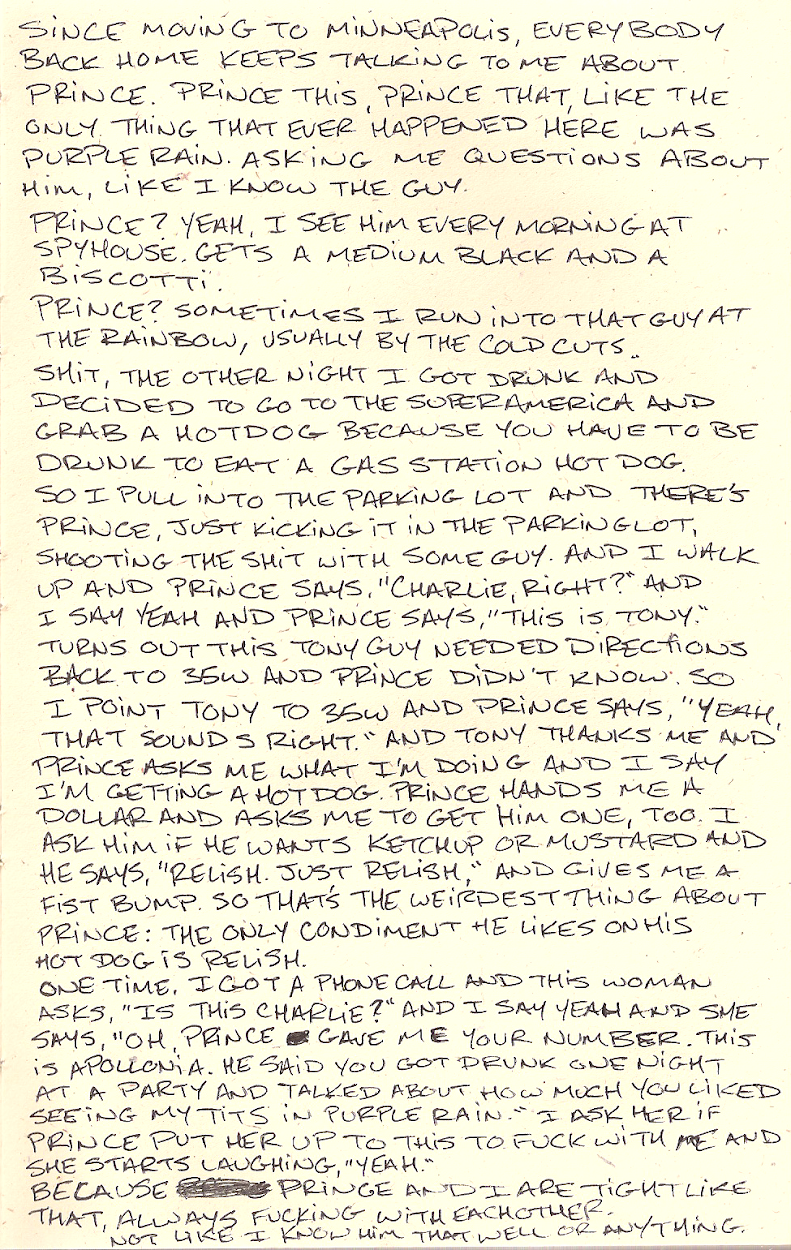 SINCE MOVING TO MINNEAPOLIS, EVERYBODY
BACK HOME KEEPS TALKING TO ME ABOUT
PRINCE. PRINCE THIS, PRINCE THAT, LIKE THE
ONLY THING THAT EVER HAPPENED HERE WAS
PURPLE RAIN. ASKING ME QUESTIONS ABOUT
HIM, LIKE I KNOW THE GUY.
PRINCE? YEAH, I SEE HIM EVERY MORNING AT
SPYHOUSE. GETS A MEDIUM BLACK AND A
BISCOTTI.
PRINCE? SOMETIMES I RUN INTO THAT GUY AT
THE RAINBOW, USUALLY BY THE COLD CUTS.
SHIT, THE OTHER NIGHT I GOT DRUNK AND
DECIDED TO GO TO THE SUPERAMERICA AND
GRAB A HOTDOG BECAUSE YOU HAVE TO BE
DRUNK TO EAT A GAS STATION HOT DOG.
SO I PULL INTO THE PARKING LOT AND THERE'S
PRINCE, JUST KICKING IT IN THE PARKING LOT,
SHOOTING THE SHIT WITH SOME GUY. AND I WALK
UP AND PRINCE SAYS, "CHARLIE, RIGHT?" AND
I SAY YEAH AND PRINCE SAYS, "THIS IS TONY."
TURNS OUT THIS TONY GUY NEEDED DIRECTIONS
BACK TO 35W AND PRINCE DIDN'T KNOW. SO
I POINT TONY TO 35W AND PRINCE SAYS, "YEAH,
THAT SOUNDS RIGHT." AND TONY THANKS ME AND
PRINCE ASKS ME WHAT I'M DOING AND I SAY
I'M GETTING A HOT DOG. PRINCE HANDS ME A
DOLLAR AND ASKS ME TO GET HIM ONE, TOO. I
ASK HIM IF HE WANTS KETCHUP OR MUSTARD AND
HE SAYS, "RELISH. JUST RELISH," AND GIVES ME A
FIST BUMP. SO THAT'S THE WEIRDEST THING ABOUT
PRINCE: THE ONLY CONDIMENT HE LIKES ON HIS
HOT DOG IS RELISH.
ONE TIME, I GOT A PHONE CALL AND THIS WOMAN
ASKS, "IS THIS CHARLIE?" AND I SAY YEAH AND SHE
SAYS, "OH, PRINCE GAVE ME YOUR NUMBER. THIS
IS APOLLONIA. HE SAID YOU GOT DRUNK ONE NIGHT
AT A PARTY AND TALKED ABOUT HOW MUCH YOU LIKED
SEEING MY TITS IN PURPLE RAIN." I ASK HER IF
PRINCE PUT HER UP TO THIS TO FUCK WITH ME AND
SHE STARTS LAUGHING, "YEAH."
BECAUSE PRINCE AND I ARE TIGHT LIKE
THAT, ALWAYS FUCKING WITH EACHOTHER.
NOT LIKE I KNOW HIM THAT WELL OR ANYTHING.